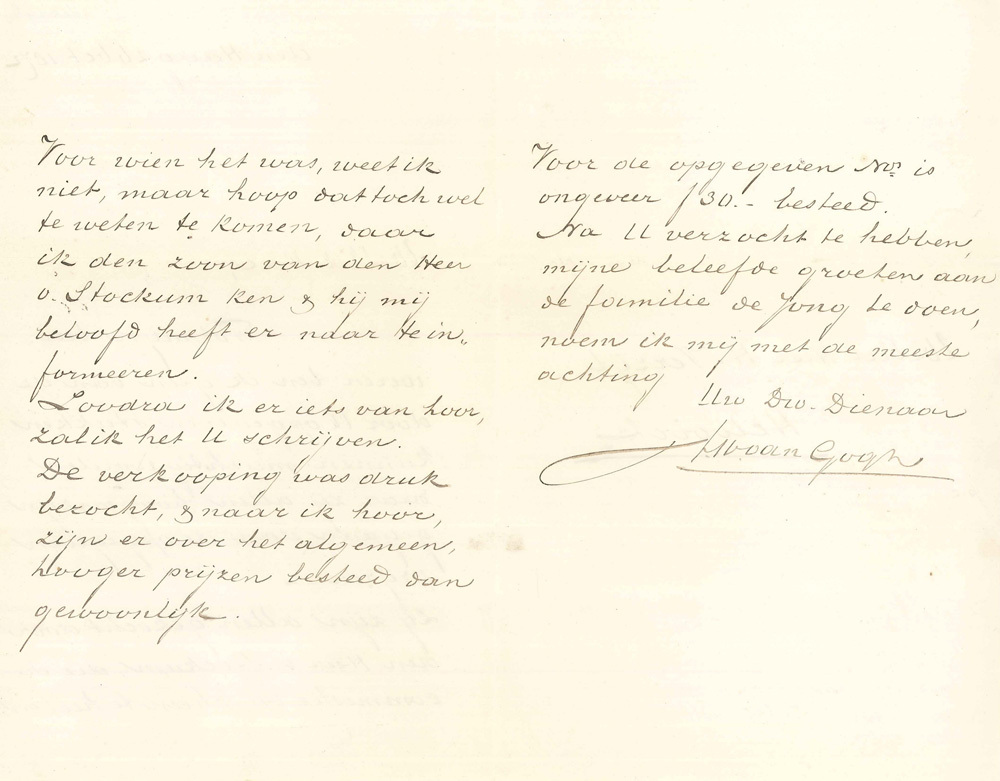 Voor wien het was, weet ik
niet, maar hoop dat toch wel
te weten te komen, daar
ik den zoon van den Heer
v. Stockum ken & hij mij
beloofd heeft er naar te in„
formeeren.
Zoodra ik er iets van hoor,
zal ik het U schrijven.
De verkooping was druk
bezocht, & naar ik hoor,
zijn er over het algemeen,
hooger prijzen besteed dan
gewoonlijk.
Voor de opgegeven Nos. is
ongeveer f 30.- besteed.
Na U verzocht te hebben,
mijne beleefde groeten aan
de familie de Jong te doen,
noem ik mij met de meeste
achting
Uw Dw. Dienaar
van Gogh